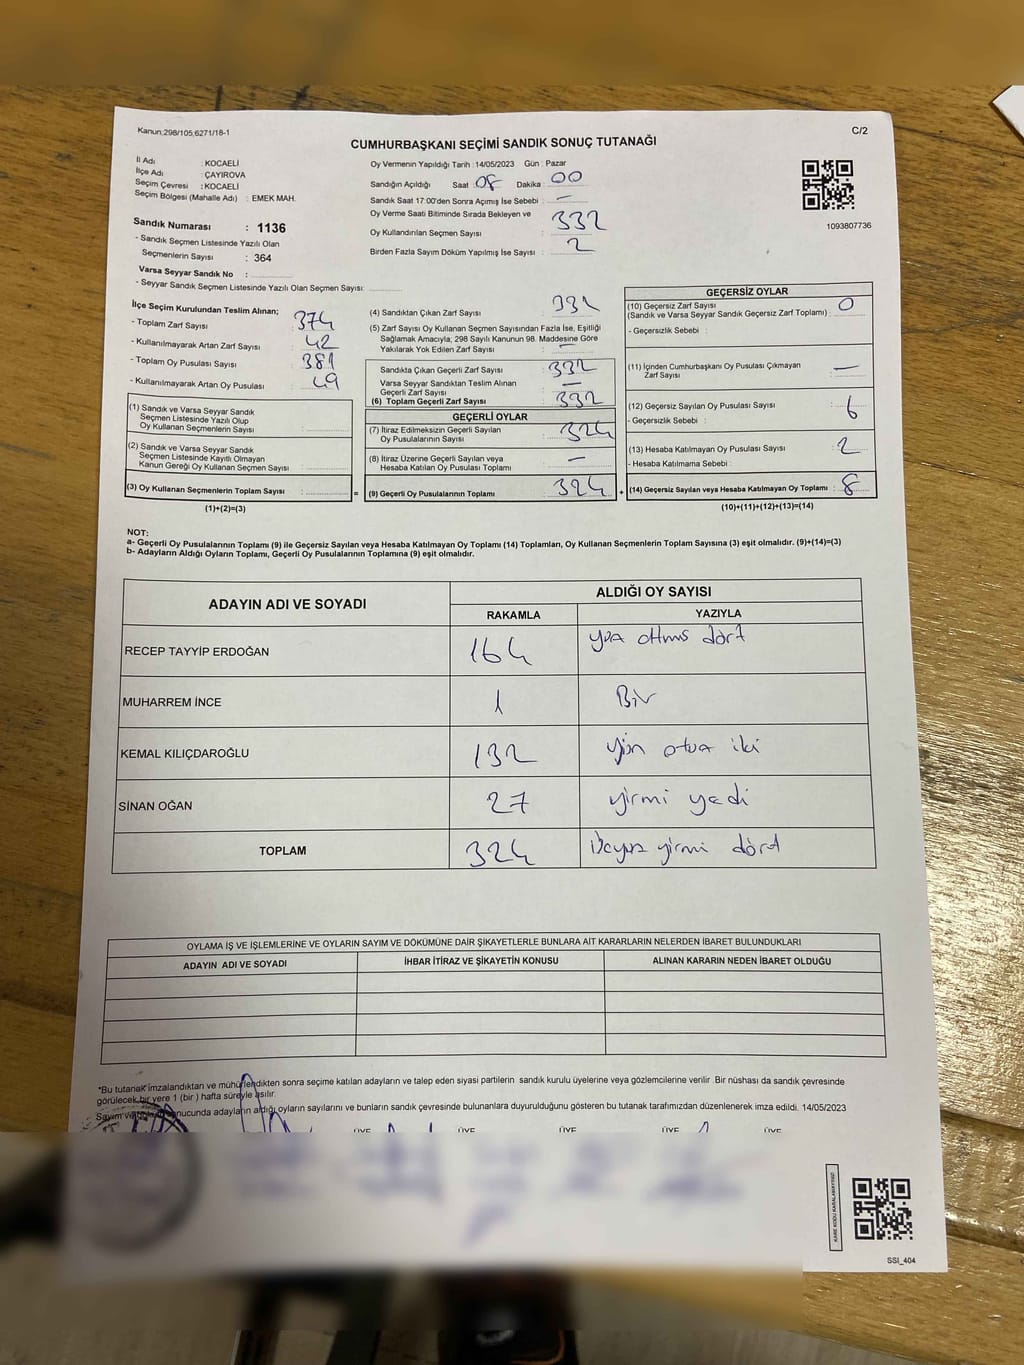 Kanun;298/105,6271/18-1
C/2
CUMHURBAŞKANI SEÇİMİ SANDIK SONUÇ TUTANAĞI
İl Adı : KOCAELİ
İlçe Adı : ÇAYIROVA
Seçim Çevresi : KOCAELİ
Seçim Bölgesi (Mahalle Adı) : EMEK MAH.
Sandık Numarası : 1136
- Sandık Seçmen Listesinde Yazılı Olan
Seçmenlerin Sayısı : 364
Varsa Seyyar Sandık No :
- Seyyar Sandık Seçmen Listesinde Yazılı Olan Seçmen Sayısı:
Oy Vermenin Yapıldığı Tarih :14/05/2023 Gün : Pazar
Sandığın Açıldığı Saat : 08 Dakika : 00
Sandık Saat 17:00'den Sonra Açımış İse Sebebi : –
Oy Verme Saati Bitiminde Sırada Bekleyen ve
Oy Kullandırılan Seçmen Sayısı : 332
Birden Fazla Sayım Döküm Yapılmış İse Sayısı : 2
1093807736
İlçe Seçim Kurulundan Teslim Alınan;
- Toplam Zarf Sayısı : 374
- Kullanılmayarak Artan Zarf Sayısı : 42
- Toplam Oy Pusulası Sayısı : 381
- Kullanılmayarak Artan Oy Pusulası : 49
(1) Sandık ve Varsa Seyyar Sandık
Seçmen Listesinde Yazılı Olup
Oy Kullanan Seçmenlerin Sayısı :
(2) Sandık ve Varsa Seyyar Sandık
Seçmen Listesinde Kayıtlı Olmayan
Kanun Gereği Oy Kullanan Seçmen Sayısı :
(3) Oy Kullanan Seçmenlerin Toplam Sayısı : =
(1)+(2)=(3)
(4) Sandıktan Çıkan Zarf Sayısı : 332
(5) Zarf Sayısı Oy Kullanan Seçmen Sayısından Fazla İse, Eşitliği
Sağlamak Amacıyla; 298 Sayılı Kanunun 98. Maddesine Göre
Yakılarak Yok Edilen Zarf Sayısı : –
Sandıkta Çıkan Geçerli Zarf Sayısı : 332
Varsa Seyyar Sandıktan Teslim Alınan
Geçerli Zarf Sayısı : –
(6) Toplam Geçerli Zarf Sayısı : 332
GEÇERLİ OYLAR
(7) İtiraz Edilmeksizin Geçerli Sayılan
Oy Pusulalarının Sayısı : 324
(8) İtiraz Üzerine Geçerli Sayılan veya
Hesaba Katılan Oy Pusulası Toplamı : –
(9) Geçerli Oy Pusulalarının Toplamı : 324 +
GEÇERSİZ OYLAR
(10) Geçersiz Zarf Sayısı
(Sandık ve Varsa Seyyar Sandık Geçersiz Zarf Toplamı) : 0
- Geçersizlik Sebebi :
(11) İçinden Cumhurbaşkanı Oy Pusulası Çıkmayan
Zarf Sayısı : –
(12) Geçersiz Sayılan Oy Pusulası Sayısı : 6
- Geçersizlik Sebebi :
(13) Hesaba Katılmayan Oy Pusulası Sayısı : 2
- Hesaba Katılmama Sebebi :
(14) Geçersiz Sayılan veya Hesaba Katılmayan Oy Toplamı : 8
(10)+(11)+(12)+(13)=(14)
NOT:
a- Geçerli Oy Pusulalarının Toplamı (9) ile Geçersiz Sayılan veya Hesaba Katılmayan Oy Toplamı (14) Toplamları, Oy Kullanan Seçmenlerin Toplam Sayısına (3) eşit olmalıdır. (9)+(14)=(3)
b- Adayların Aldığı Oyların Toplamı, Geçerli Oy Pusulalarının Toplamına (9) eşit olmalıdır.
ADAYIN ADI VE SOYADI
ALDIĞI OY SAYISI
RAKAMLA YAZIYLA
RECEP TAYYİP ERDOĞAN 164 yüz altmış dört
MUHARREM İNCE 1 Bir
KEMAL KILIÇDAROĞLU 132 yüz otuz iki
SİNAN OĞAN 27 yirmi yedi
TOPLAM 324 üçyüz yirmi dört
OYLAMA İŞ VE İŞLEMLERİNE VE OYLARIN SAYIM VE DÖKÜMÜNE DAİR ŞİKAYETLERLE BUNLARA AİT KARARLARIN NELERDEN İBARET BULUNDUKLARI
ADAYIN ADI VE SOYADI İHBAR İTİRAZ VE ŞİKAYETİN KONUSU ALINAN KARARIN NEDEN İBARET OLDUĞU
*Bu tutanak imzalandıktan ve mühürlendikten sonra seçime katılan adayların ve talep eden siyasi partilerin sandık kurulu üyelerine veya gözlemcilerine verilir. Bir nüshası da sandık çevresinde
görülecek bir yere 1 (bir) hafta süreyle asılır.
Sayım ve sonucunda adayların aldığı oyların sayılarını ve bunların sandık çevresinde bulunanlara duyurulduğunu gösteren bu tutanak tarafımızdan düzenlenerek imza edildi. 14/05/2023
ÜYE ÜYE ÜYE ÜYE ÜYE
KARE KODU KARALAMAYINIZ!
SSI_404